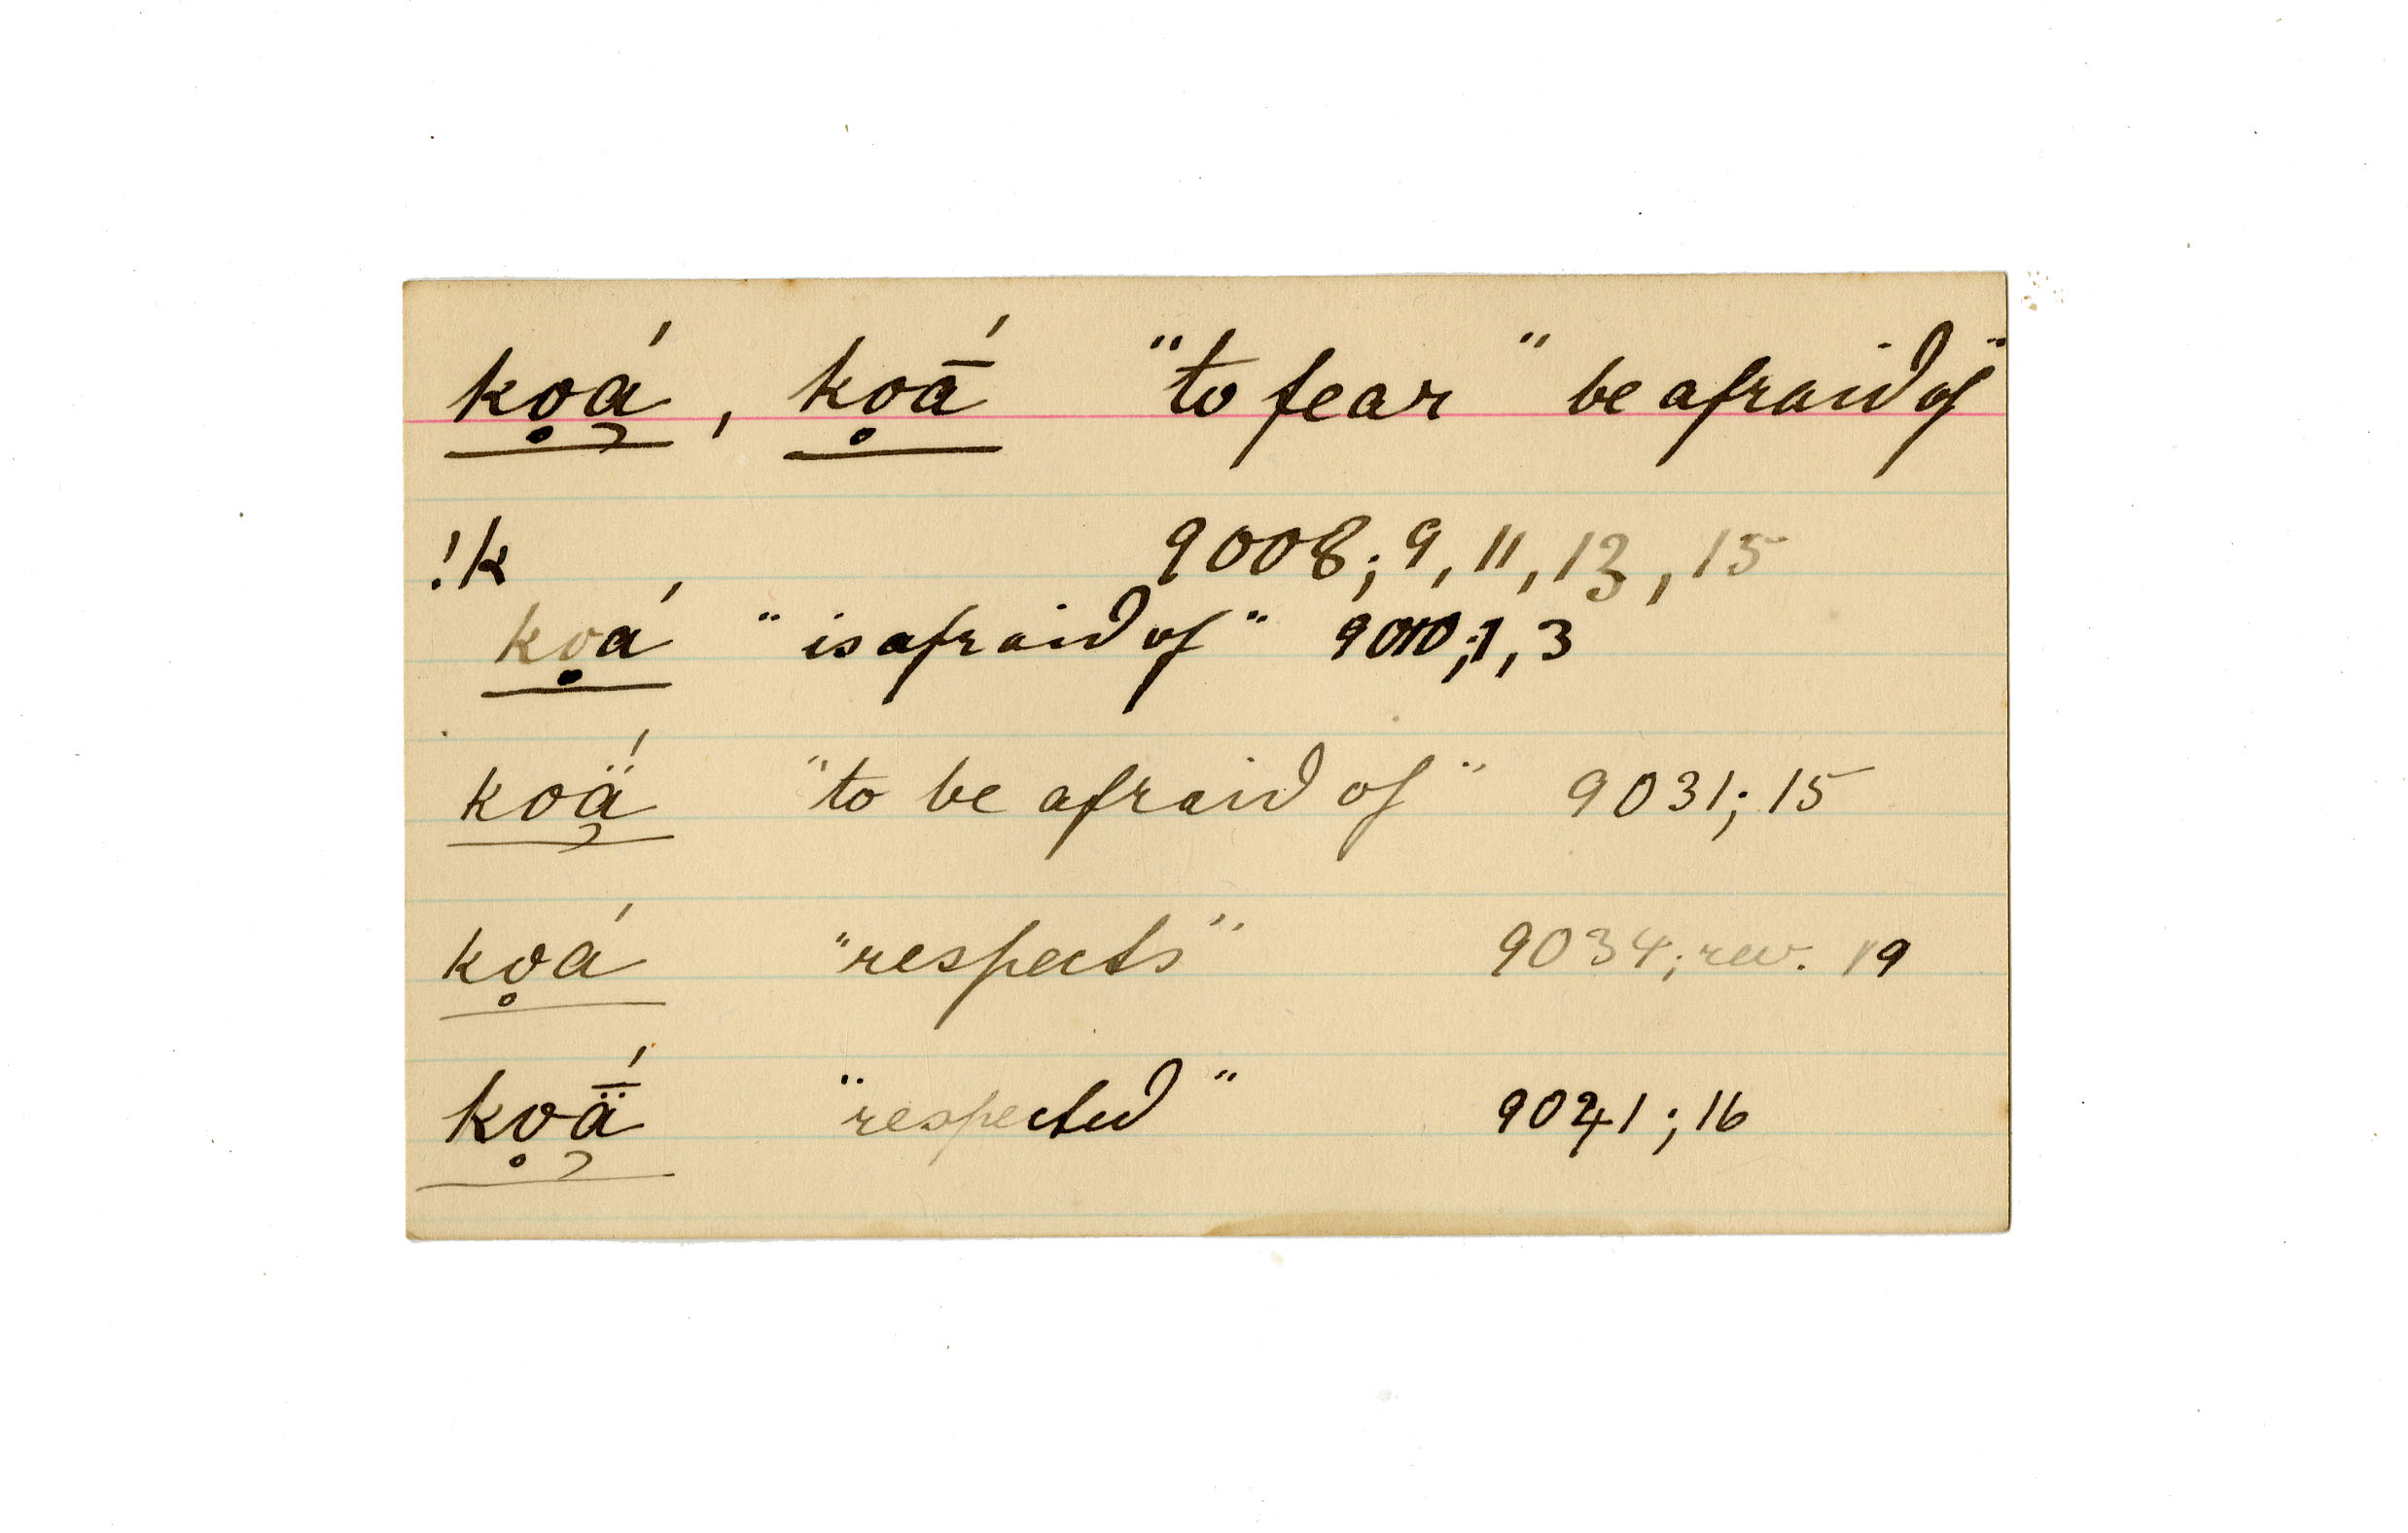 kọą́, kọā́ "to fear" be afraid of"
!k 9008; 9, 11, 13, 15
kọá "is afraid of" 9010; 1, 3
koą̈́ "to be afraid of" 9031; 15
kọá "respects" 9034; rev. 19
kọą̈̄́ "respected" 9041; 16